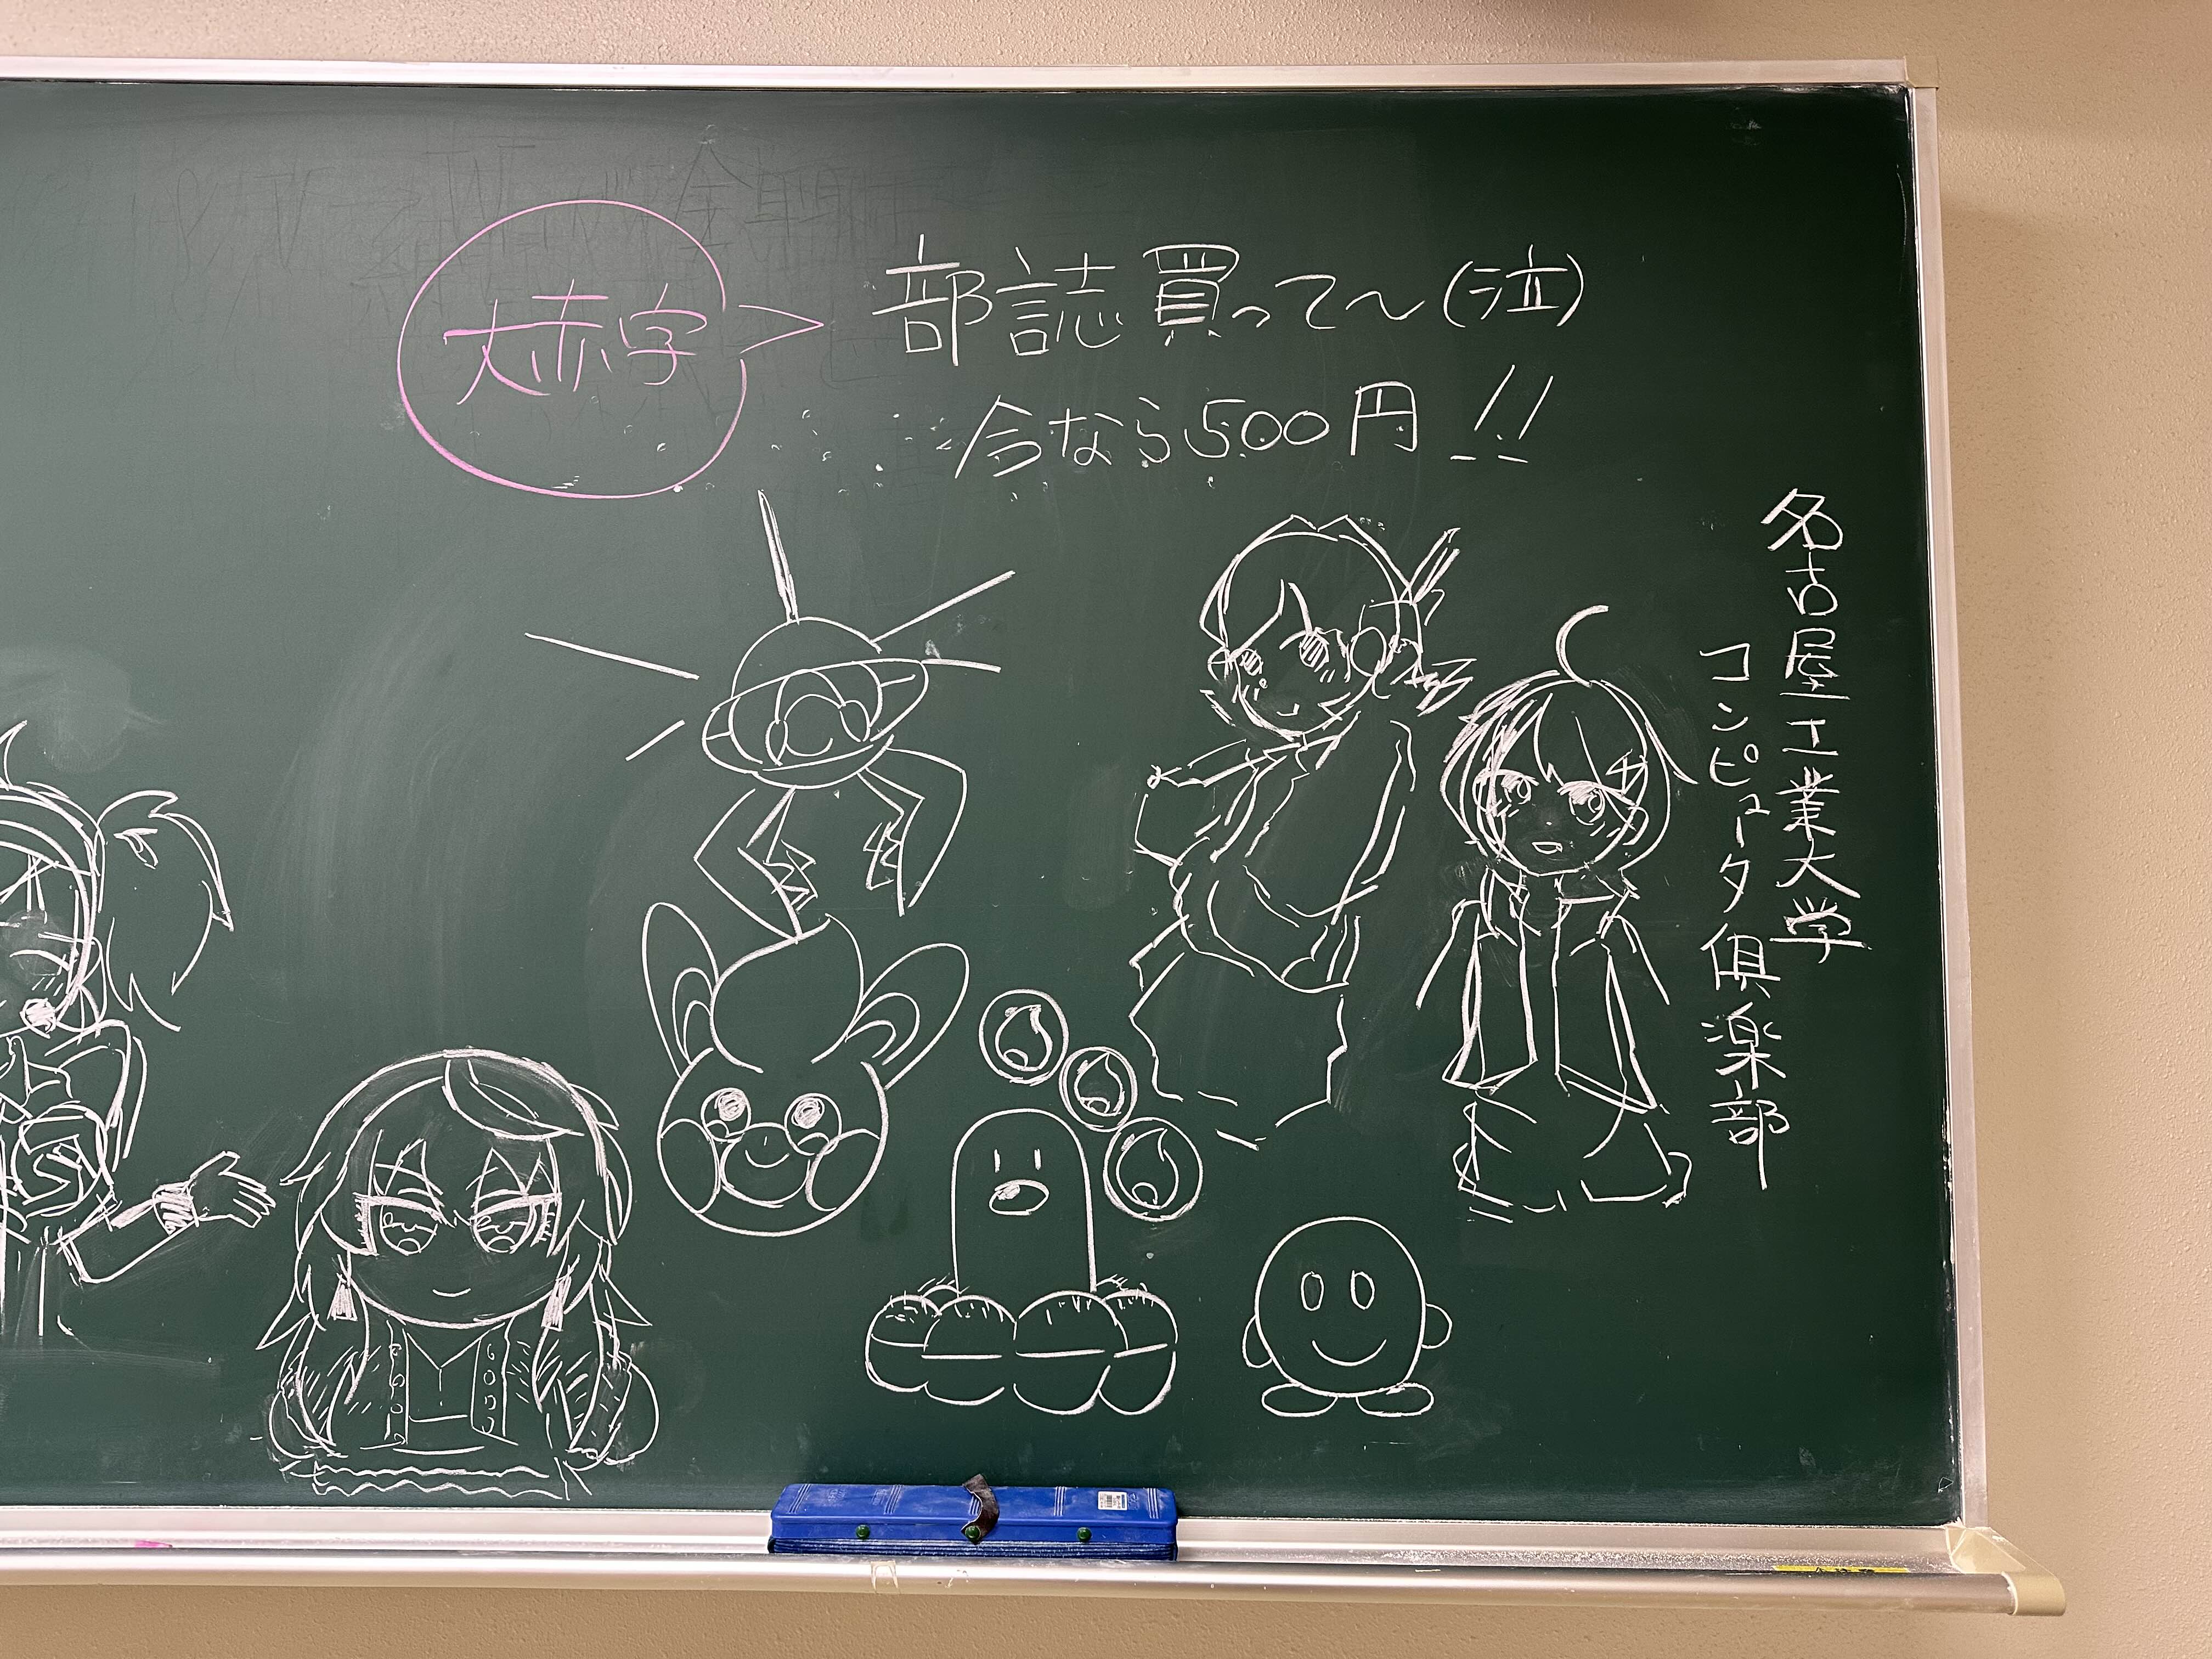 大赤字
部誌買って～(泣)
今なら500円!!
名古屋工業大学
コンピュータ倶楽部